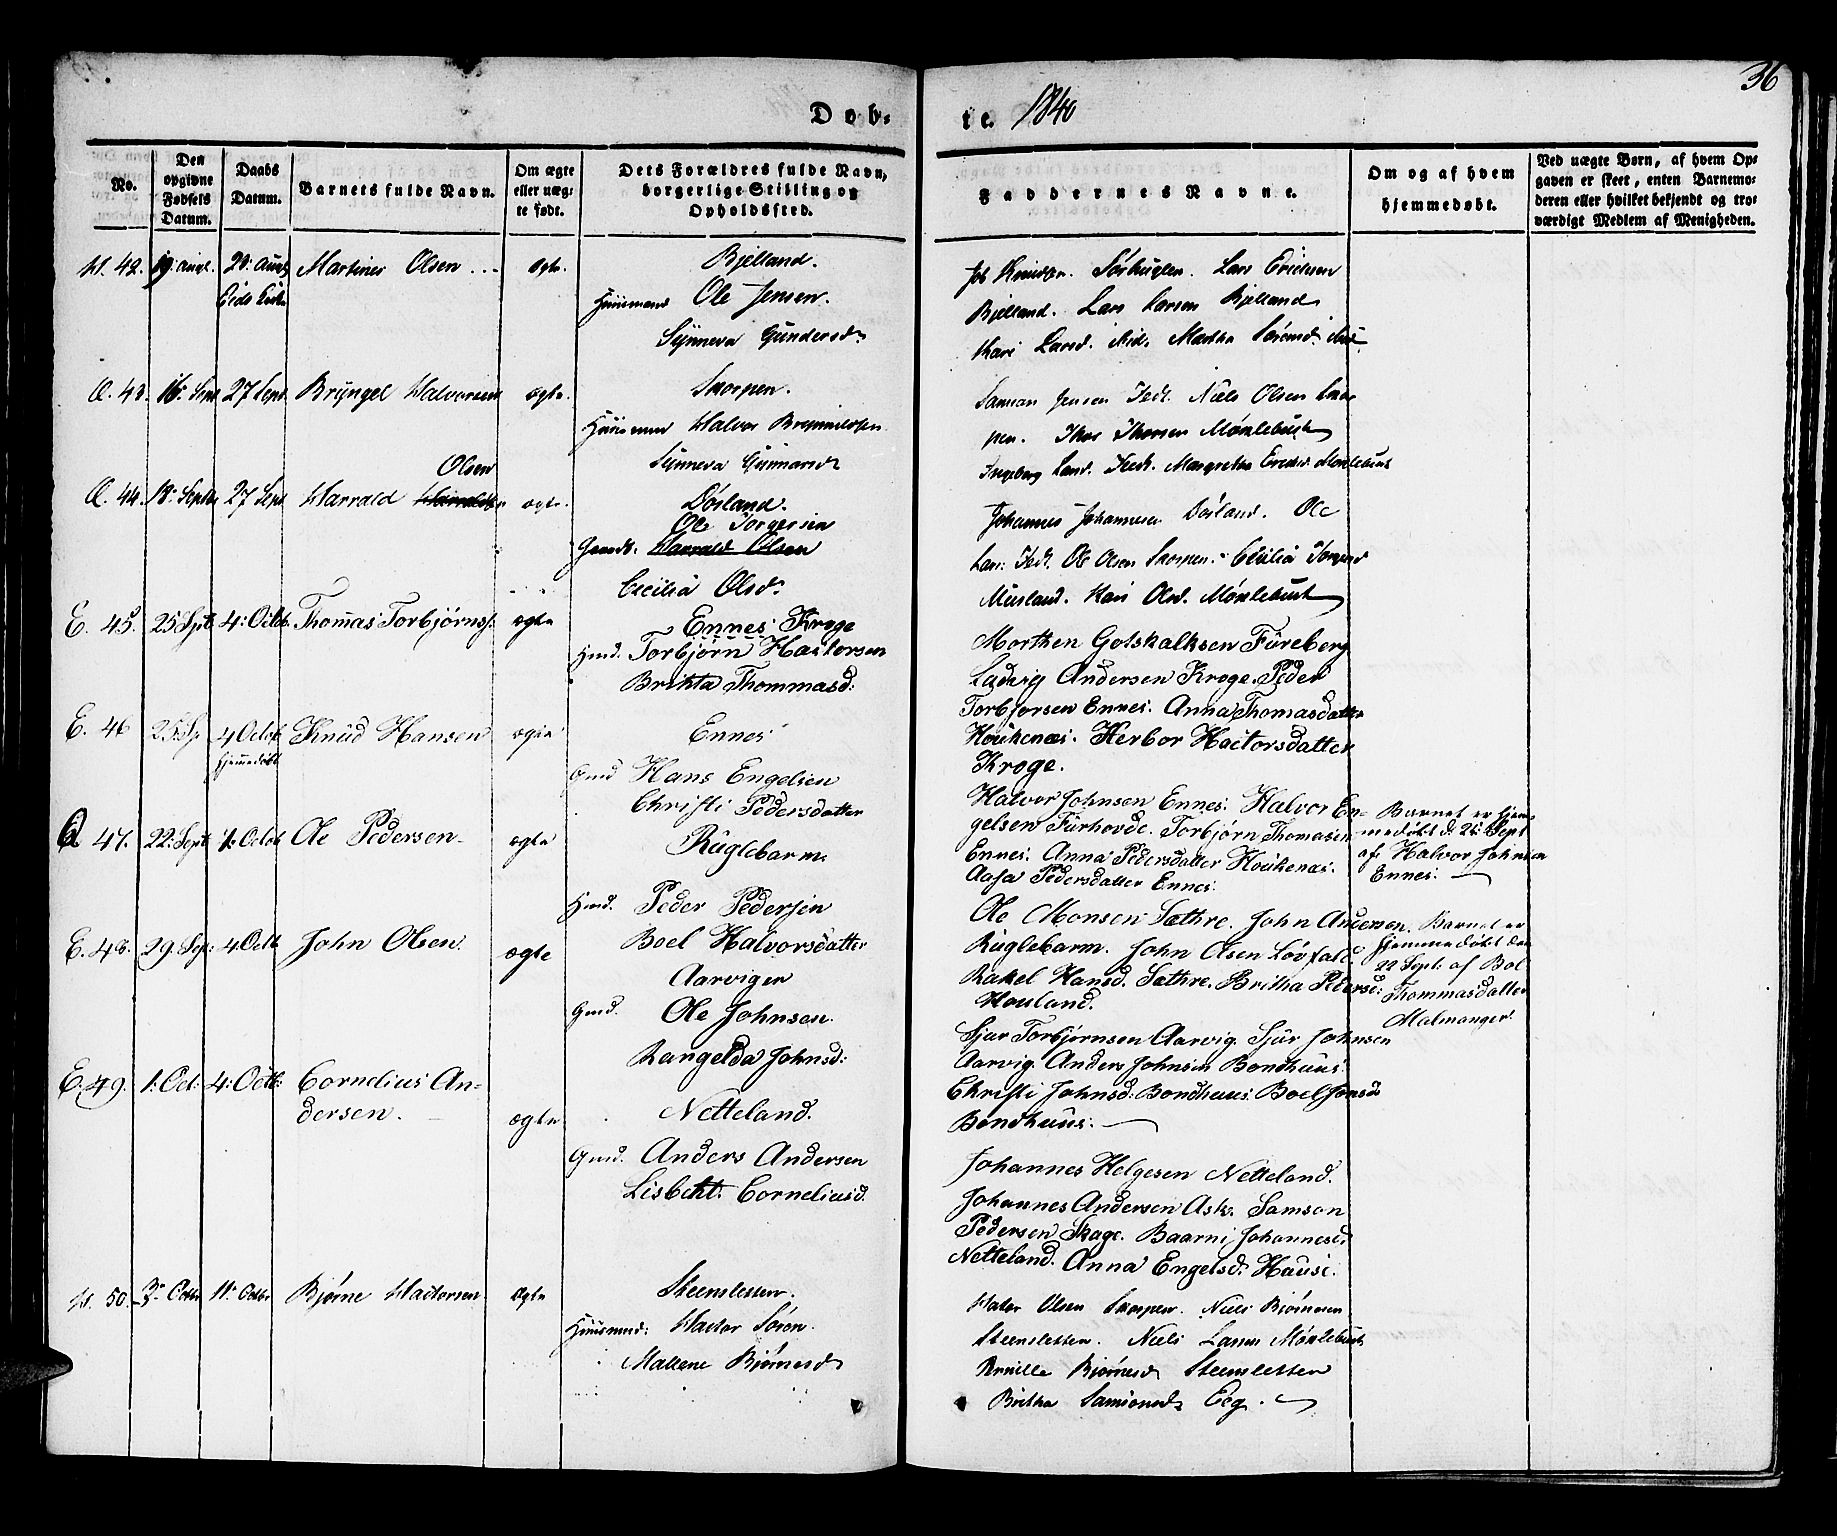 36
Døb-
te. 1840
No.
Den opgivne Fødsels Datum.
Daabs Datum.
Barnets fulde Navn.
Om ægte eller uæg-
te født.
Dets Forældres fulde Navn,
borgerlige Stilling og
Opholdssted.
Faddernes Navne.
Om og af hvem
hjemmedøbt.
Ved uægte Børn, af hvem Op-
gaven er skeet, enten Barnemo-
deren eller hvilket bekjendt og tro-
værdigt Medlem af Menigheden.
42. 19. Augt. 20. Augt Martines Olsen ægte. Bjelland.
Eids Kirke
Huusmand Ole Jensen.
Synneva Gundersd.
Sørhuglen. Lars Ericksen
Bjelland. Lars Larsen Bjelland
Kari Larsd. ibid. Martha
Æ. 43. 16. Sept 27 Sept. Bryngel Halvorsen ægte. Skorpen.
Huusmand Halvor
Synneva Gunnarsd.
Samson Jensen Tedt. Niels Olsen Skor-
pen. Thor Thorsen Mønlebust
Ingeborg Larsd. Tedt. Margretha Ericksd. Mønlebust
Æ. 44. 18. Septbr 27 Sept Harrald Haraldsen Olsen ægte. Døsland.
Ole Torgersen
Gaardb. Harrald Olsen
Cecilia Olsd.
Johannes Johannesen Døsland. Ole
Lars: Tedt. Ole Olsen Skorpen. Cecilia
Musland. Kari Olsd. Mønlebust
E. 45. 25 Sept. 4. Octob. Thomas Torbjørns. ægte Ennes Kroge
Hmd. Torbjørn Hactorsen
Britha Thommasd:
Morthen Gotskalksen Fureberg
Ludvig Andersen Kroge. Peder
Torbjorsen Ennes. Anna Thomasdatter
Houkenæs. Herbor Hactorsdatter
Kroge.
E. 46 25. Sp. 4 Octob. Knud Hansen ægte Ennes
hjemmedøbt
Gmd Hans Engelsen
Christi Pedersdatter
Halvor Johnsen Ennes. Halvor En-
gelsen Furhovde. Torbjørn Thomasen
Ennes. Anna Pedersdatter Houkenæs.
Aasa Pedersdatter Ennes.
Barnet er hjem-
medøbt d: 26. Sept
af Halvor Johnsen
Ennes.
47. 22. Sept 1. Octob Ole Pedersen. ægte Ruglebarm
Hmd. Peder Pedersen
Boel Halvorsdatter
Ole Monsen Sæthre. John Andersen.
Ruglebarm. John Olsen Løvfald.
Rakel Hansd. Sæthre. Britha Pedersd:
Houland.
Barnet er
hjemmedøbt den
22 Sept: af Bol
Thommasdatter
Malmanger.
E. 48. 29. Sep: 4 Octb John Olsen. ægte Aarviger
Gmd. Ole Johnsen.
Rangelda Johnsd:
Sjur Torbjørnsen Aarvig. Sjur Johnsen
Aarvig. Anders Johnsen Bondhuus.
Christi Johnsd: Bondhuus. Boel Jonsd
Bondhuus.
E. 49. 1. Oct. 4. Octb: Cornelius An-
dersen. ægte Netteland.
Gmd. Anders Andersen
Lisbeht. Corneliusd.
Johannes Helgesen Netteland.
Johannes Andersen Ask. Samson
Pedersen Skage. Baarni Johannesd.
Netteland. Anna Engelsd. Hause.
50. 3. Octbr 11. Octbr Bjørne Hactorsen ægte Steensletten.
Huusmd: Hactor Søren.
Malene Bjørnesd
Hactor Olsen Skorpen. Niels Bjørnesen
Steensletten. Niels Larsen Mønlebust
Bjørnesd Steensletten
Britha Samsonsd. Eeg.